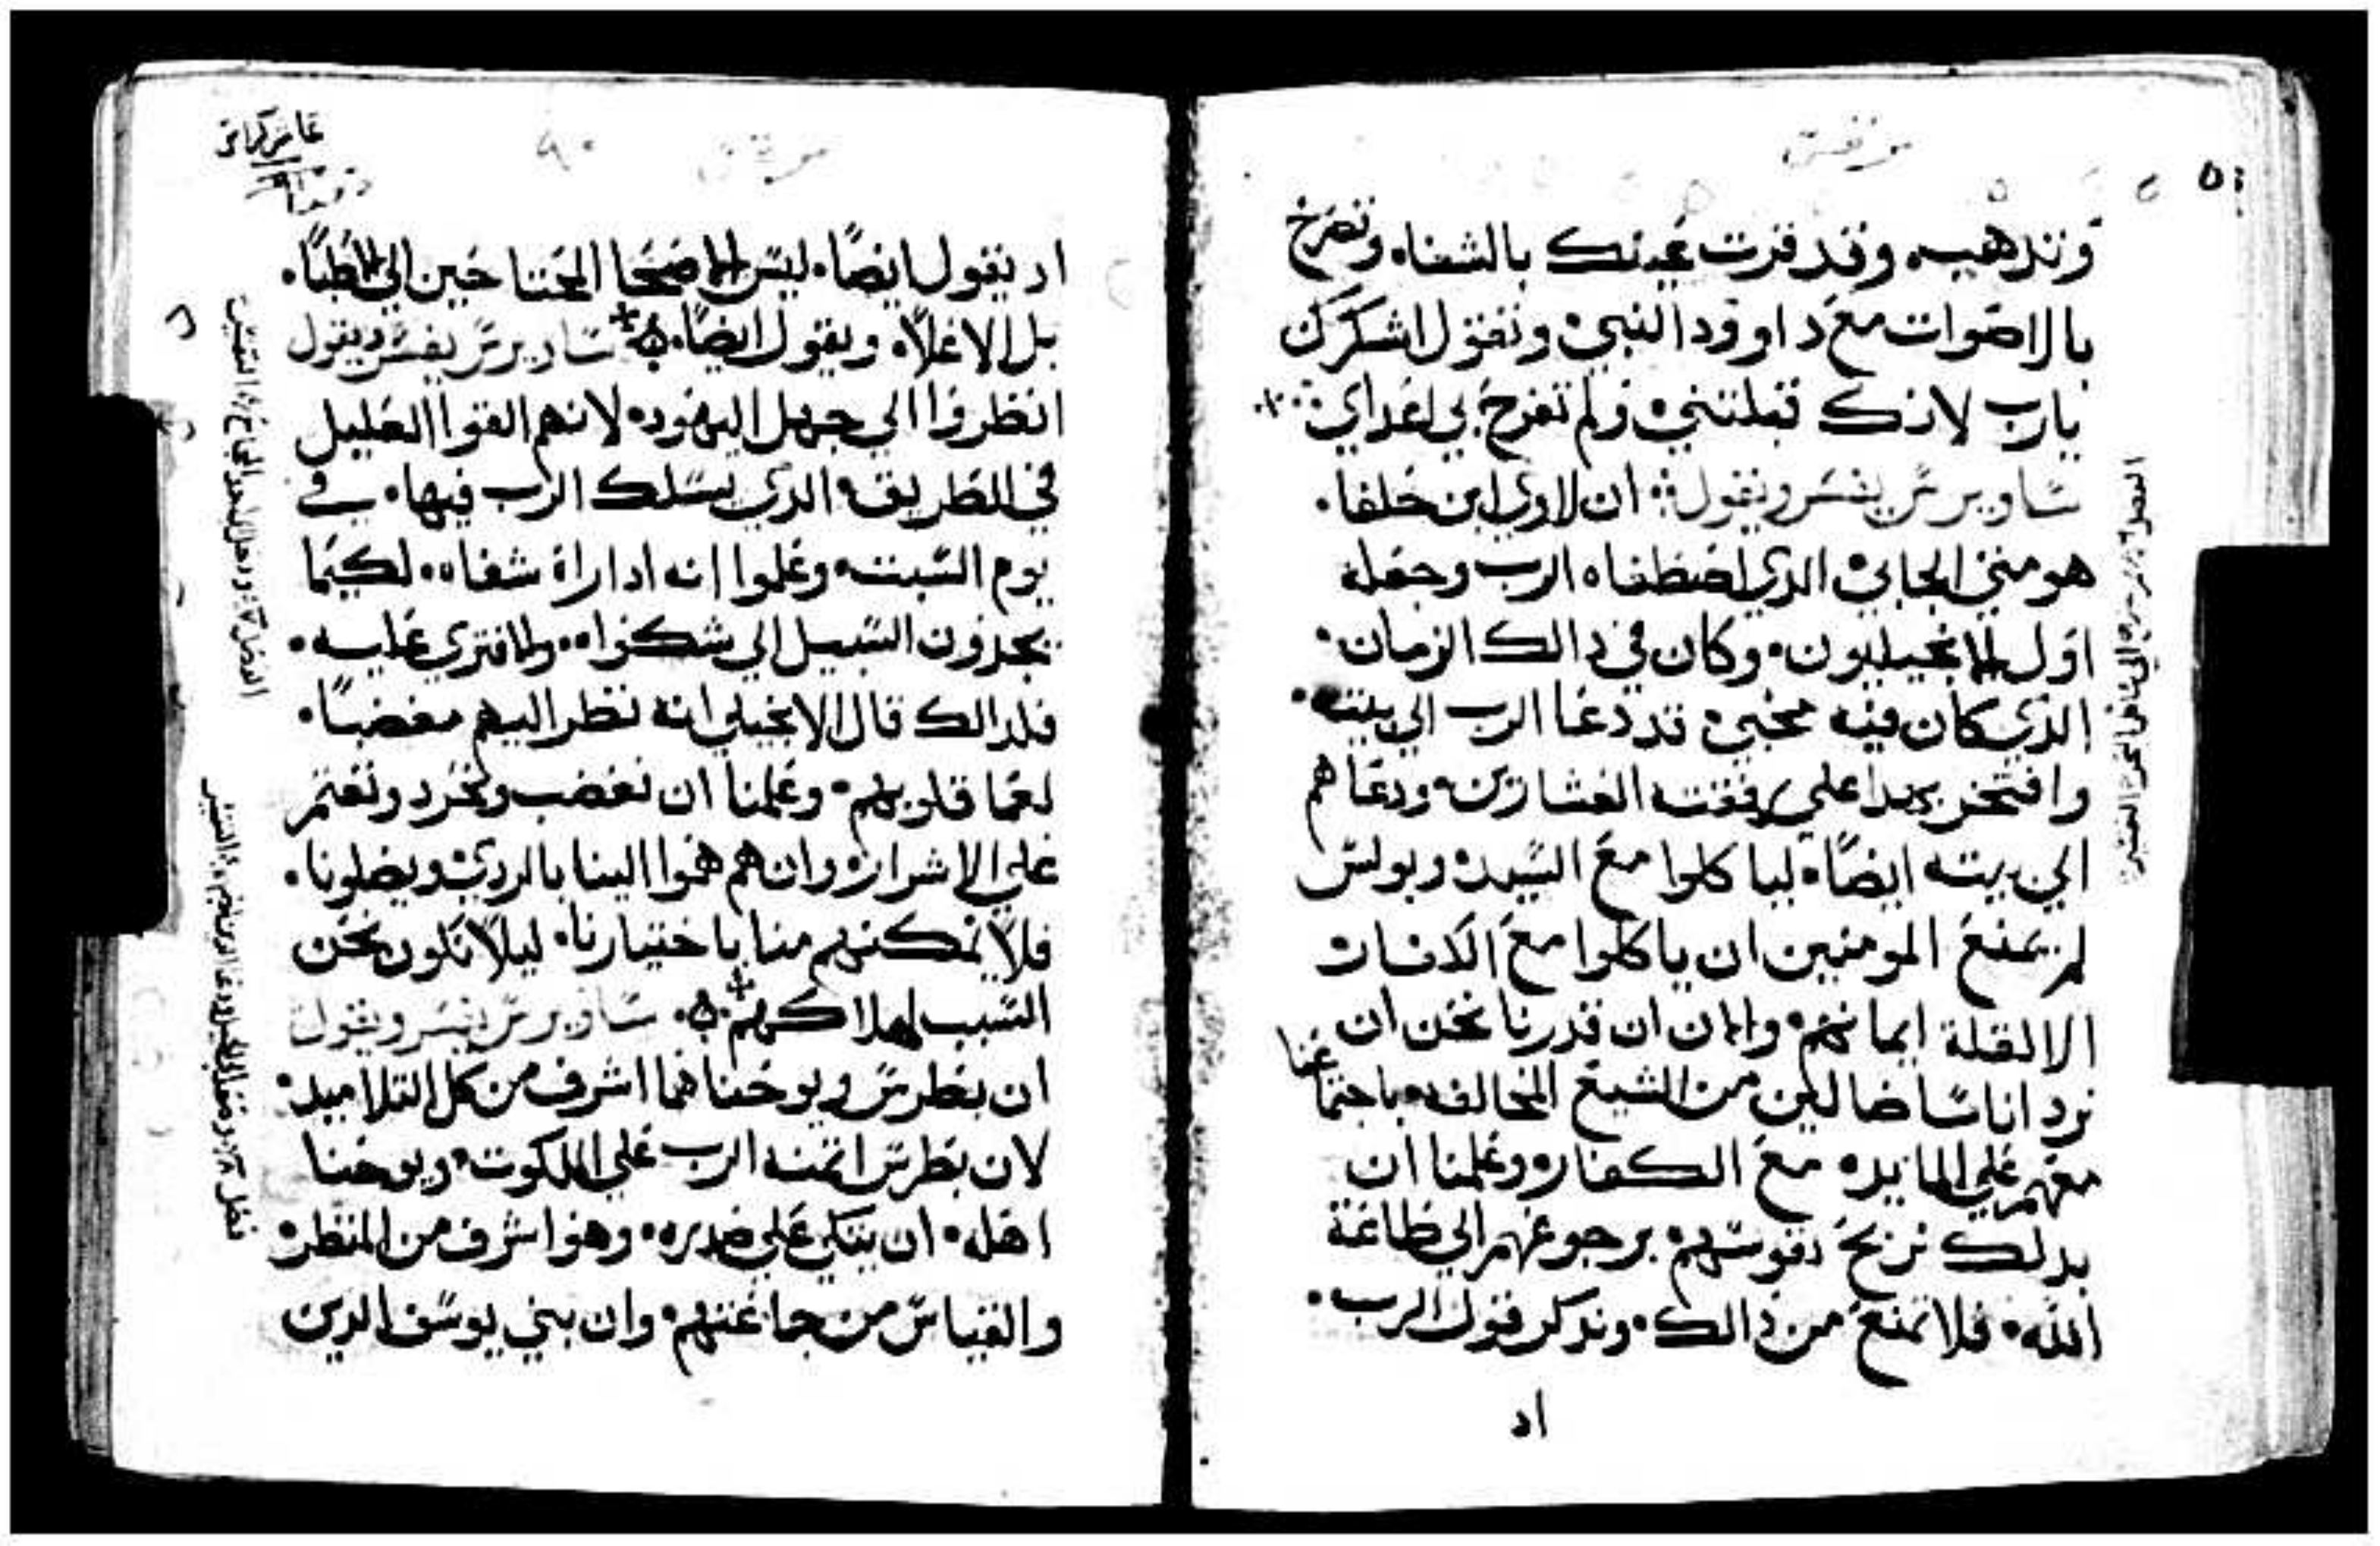 مرقس
وتدهب، وقد قرت عينك بالشفاء وتصرخ
بالاصوات مع داوود النبي، وتقول اشكرك
يارب لانك قبلتني، ولم تفرح بي اعداي.
ساويرس يفسر ويقول: ان لاوي ابن حلفا.
هو متي الجابي، الدي اصطفاه الرب وجعله
اول الانجيليون. وكان في دالك الزمان.
الدي كان فيه مخبي، قد دعا الرب الي بيته.
وافتخر بهدا علي رفقته العشارين، ودعاهم
الي بيته ايضًا. لياكلوا مع السيد، وبولس
لم يمنع المومنين ان ياكلوا مع الكفار،
الا لقلة ايمانهم، والان ان قدرنا نحن ان
نرد اناسًا ضالين من الشيع المخالفه، باجتماعنا
معهم علي المايده مع الكفار، وعلمنا ان
بدلك نربح نفوسهم، برجوعهم الي طاعة
الله. فلا نمنع من دالك. وندكر قول الرب.
اد
مرقس ٩٠
اد يقول ايضًا. ليس الاصحا المحتاحين الي الاطبا.
بل الاعلاء، ويقول ايضًا. ساويرس يفسر ويقول
انظروا الي جهل اليهود، لانهم القوا العليل
في الطريق، الدي يسلك الرب فيها. في
يوم السبت، وعلموا انه ادا راه شفاه. لكيما
يجدون السبيل الي شكواه. والافتري عليه.
فلدالك قال الانجيلي انه نظر اليهم مغضبًا.
لعما قلوبهم. وعلمنا ان نغضب ونحرد ونغتم
علي الاشرار، وان هم هموا الينا بالردي، ويضلونا.
فلا نمكنهم منا باختيارنا، ليلا نكون نحن
السبب لهلاكهم. ساويرس يفسر ويقول
ان بطرس ويوحنا هما اشرف من كل التلاميد.
لان بطرس اتمنه الرب علي الملكوت، ويوحنا
اهله. ان يتكي علي صدره. وهو اشرف من المنظر،
والقياس من جماعتهم. وان بني يوسف الدين